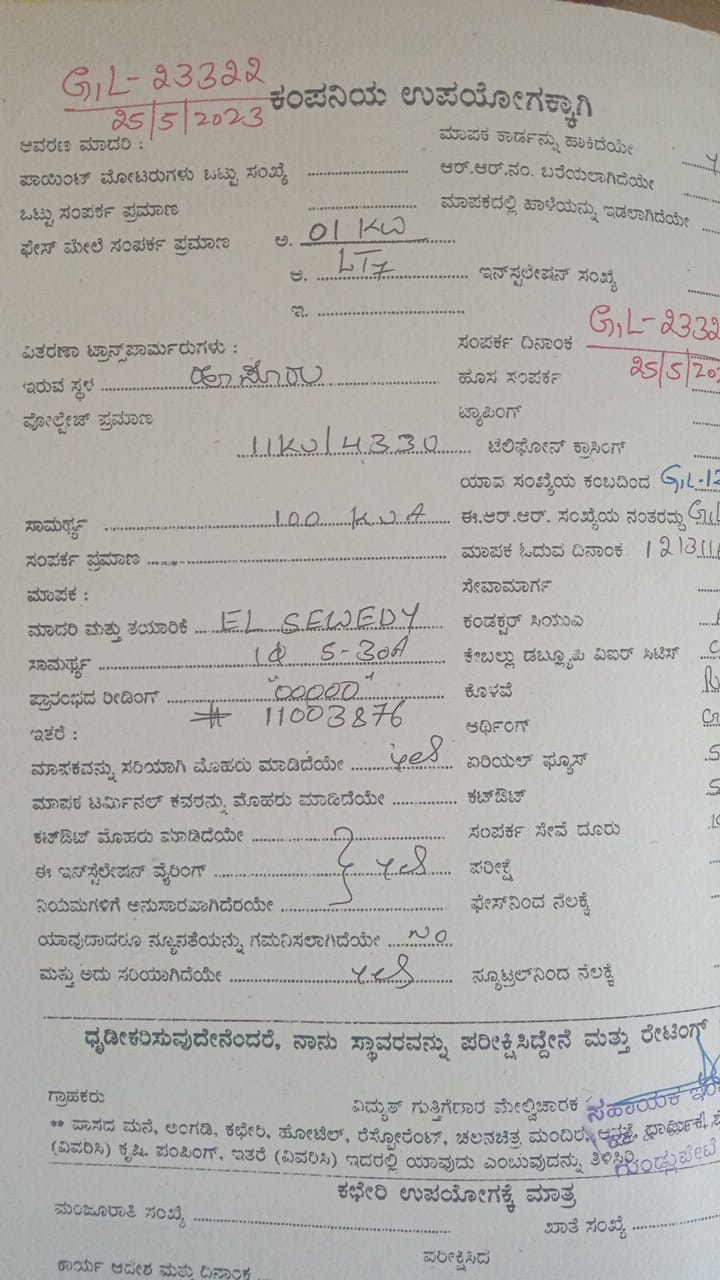 G,L-23322
25/5/2023
ಕಂಪನಿಯ ಉಪಯೋಗಕ್ಕಾಗಿ
ಆವರಣ ಮಾದರಿ :
ಮಾಪಕ ಕಾರ್ಡನ್ನು ಹಾಕಿದೆಯೇ
ಪಾಯಿಂಟ್ ಮೋಟರುಗಳು ಒಟ್ಟು ಸಂಖ್ಯೆ
ಆರ್.ಆರ್.ನಂ. ಬರೆಯಲಾಗಿದೆಯೇ
ಒಟ್ಟು ಸಂಪರ್ಕ ಪ್ರಮಾಣ
ಮಾಪಕದಲ್ಲಿ ಹಾಳೆಯನ್ನು ಇಡಲಾಗಿದೆಯೇ
ಫೇಸ್ ಮೇಲೆ ಸಂಪರ್ಕ ಪ್ರಮಾಣ ಅ. 01 KW
ಆ. LT7 ಇನ್‌ಸ್ಟಲೇಷನ್ ಸಂಖ್ಯೆ
ಇ.
G,L-2332
25/5/202
ವಿತರಣಾ ಟ್ರಾನ್ಸ್‌ಫಾರ್ಮರುಗಳು :
ಸಂಪರ್ಕ ದಿನಾಂಕ
ಇರುವ ಸ್ಥಳ
ಹೊಸ ಸಂಪರ್ಕ
ವೋಲ್ಟೇಜ್ ಪ್ರಮಾಣ
ಟ್ಯಾಪಿಂಗ್
11KV/4330 ಟೆಲಿಫೋನ್ ಕ್ರಾಸಿಂಗ್
ಯಾವ ಸಂಖ್ಯೆಯ ಕಂಬದಿಂದ G,L-12
ಸಾಮರ್ಥ್ಯ 100 KVA
ಈ.ಆರ್.ಆರ್. ಸಂಖ್ಯೆಯ ನಂತರದ್ದು GL
ಸಂಪರ್ಕ ಪ್ರಮಾಣ
ಮಾಪಕ ಓದುವ ದಿನಾಂಕ
ಮಾಪಕ :
ಸೇವಾಮಾರ್ಗ
ಮಾದರಿ ಮತ್ತು ತಯಾರಿಕೆ EL SEWEDY
ಕಂಡಕ್ಟರ್ ಸಿಯುಎ
ಸಾಮರ್ಥ್ಯ 1Φ 5-30A
ಕೇಬಲ್ಲು ಡಬ್ಲ್ಯೂಪಿ ವಿಐರ್ ಸಿಟಿಸ್
ಪ್ರಾರಂಭದ ರೀಡಿಂಗ್ "00000"
ಕೊಳವೆ
# 11003876
ಇತರೆ :
ಆರ್ಥಿಂಗ್
ಮಾಪಕವನ್ನು ಸರಿಯಾಗಿ ಮೊಹರು ಮಾಡಿದೆಯೇ yes
ಏರಿಯಲ್ ಫ್ಯೂಸ್
ಮಾಪಕ ಟರ್ಮಿನಲ್ ಕವರನ್ನು ಮೊಹರು ಮಾಡಿದೆಯೇ
ಕಟ್‌ಔಟ್
ಕಟ್‌ಔಟ್ ಮೊಹರು ಮಾಡಿದೆಯೇ
ಸಂಪರ್ಕ ಸೇವೆ ದೂರು
ಈ ಇನ್‌ಸ್ಟಲೇಷನ್ ವೈರಿಂಗ್ yes
ಪರೀಕ್ಷೆ
ನಿಯಮಗಳಿಗೆ ಅನುಸಾರವಾಗಿದೆರಯೇ
ಫೇಸ್‌ನಿಂದ ನೆಲಕ್ಕೆ
ಯಾವುದಾದರೂ ನ್ಯೂನತೆಯನ್ನು ಗಮನಿಸಲಾಗಿದೆಯೇ no
ಮತ್ತು ಅದು ಸರಿಯಾಗಿದೆಯೇ yes
ನ್ಯೂಟ್ರಲ್‌ನಿಂದ ನೆಲಕ್ಕೆ
ಧೃಢೀಕರಿಸುವುದೇನೆಂದರೆ, ನಾನು ಸ್ಥಾವರವನ್ನು ಪರೀಕ್ಷಿಸಿದ್ದೇನೆ ಮತ್ತು ರೇಟಿಂಗ್
ಗ್ರಾಹಕರು
ವಿದ್ಯುತ್ ಗುತ್ತಿಗೆದಾರ ಮೇಲ್ವಿಚಾರಕ
ಸಹಾಯಕ
** ವಾಸದ ಮನೆ, ಅಂಗಡಿ, ಕಛೇರಿ, ಹೋಟೆಲ್, ರೆಸ್ಟೋರೆಂಟ್, ಚಲನಚಿತ್ರ ಮಂದಿರ, ಆಸ್ಪತ್ರೆ, ಧಾರ್ಮಿಕ,
(ವಿವರಿಸಿ) ಕೃಷಿ. ಪಂಪಿಂಗ್, ಇತರೆ (ವಿವರಿಸಿ) ಇದರಲ್ಲಿ ಯಾವುದು ಎಂಬುವುದನ್ನು ತಿಳಿಸಿರಿ.
ಗುಂಡ್ಲುಪೇಟೆ
ಕಛೇರಿ ಉಪಯೋಗಕ್ಕೆ ಮಾತ್ರ
ಮಂಜೂರಾತಿ ಸಂಖ್ಯೆ
ಖಾತೆ ಸಂಖ್ಯೆ
ಪರೀಕ್ಷಿಸಿದ
ಕಾರ್ಯ ಆದೇಶ ಮತ್ತು ದಿನಾಂಕ